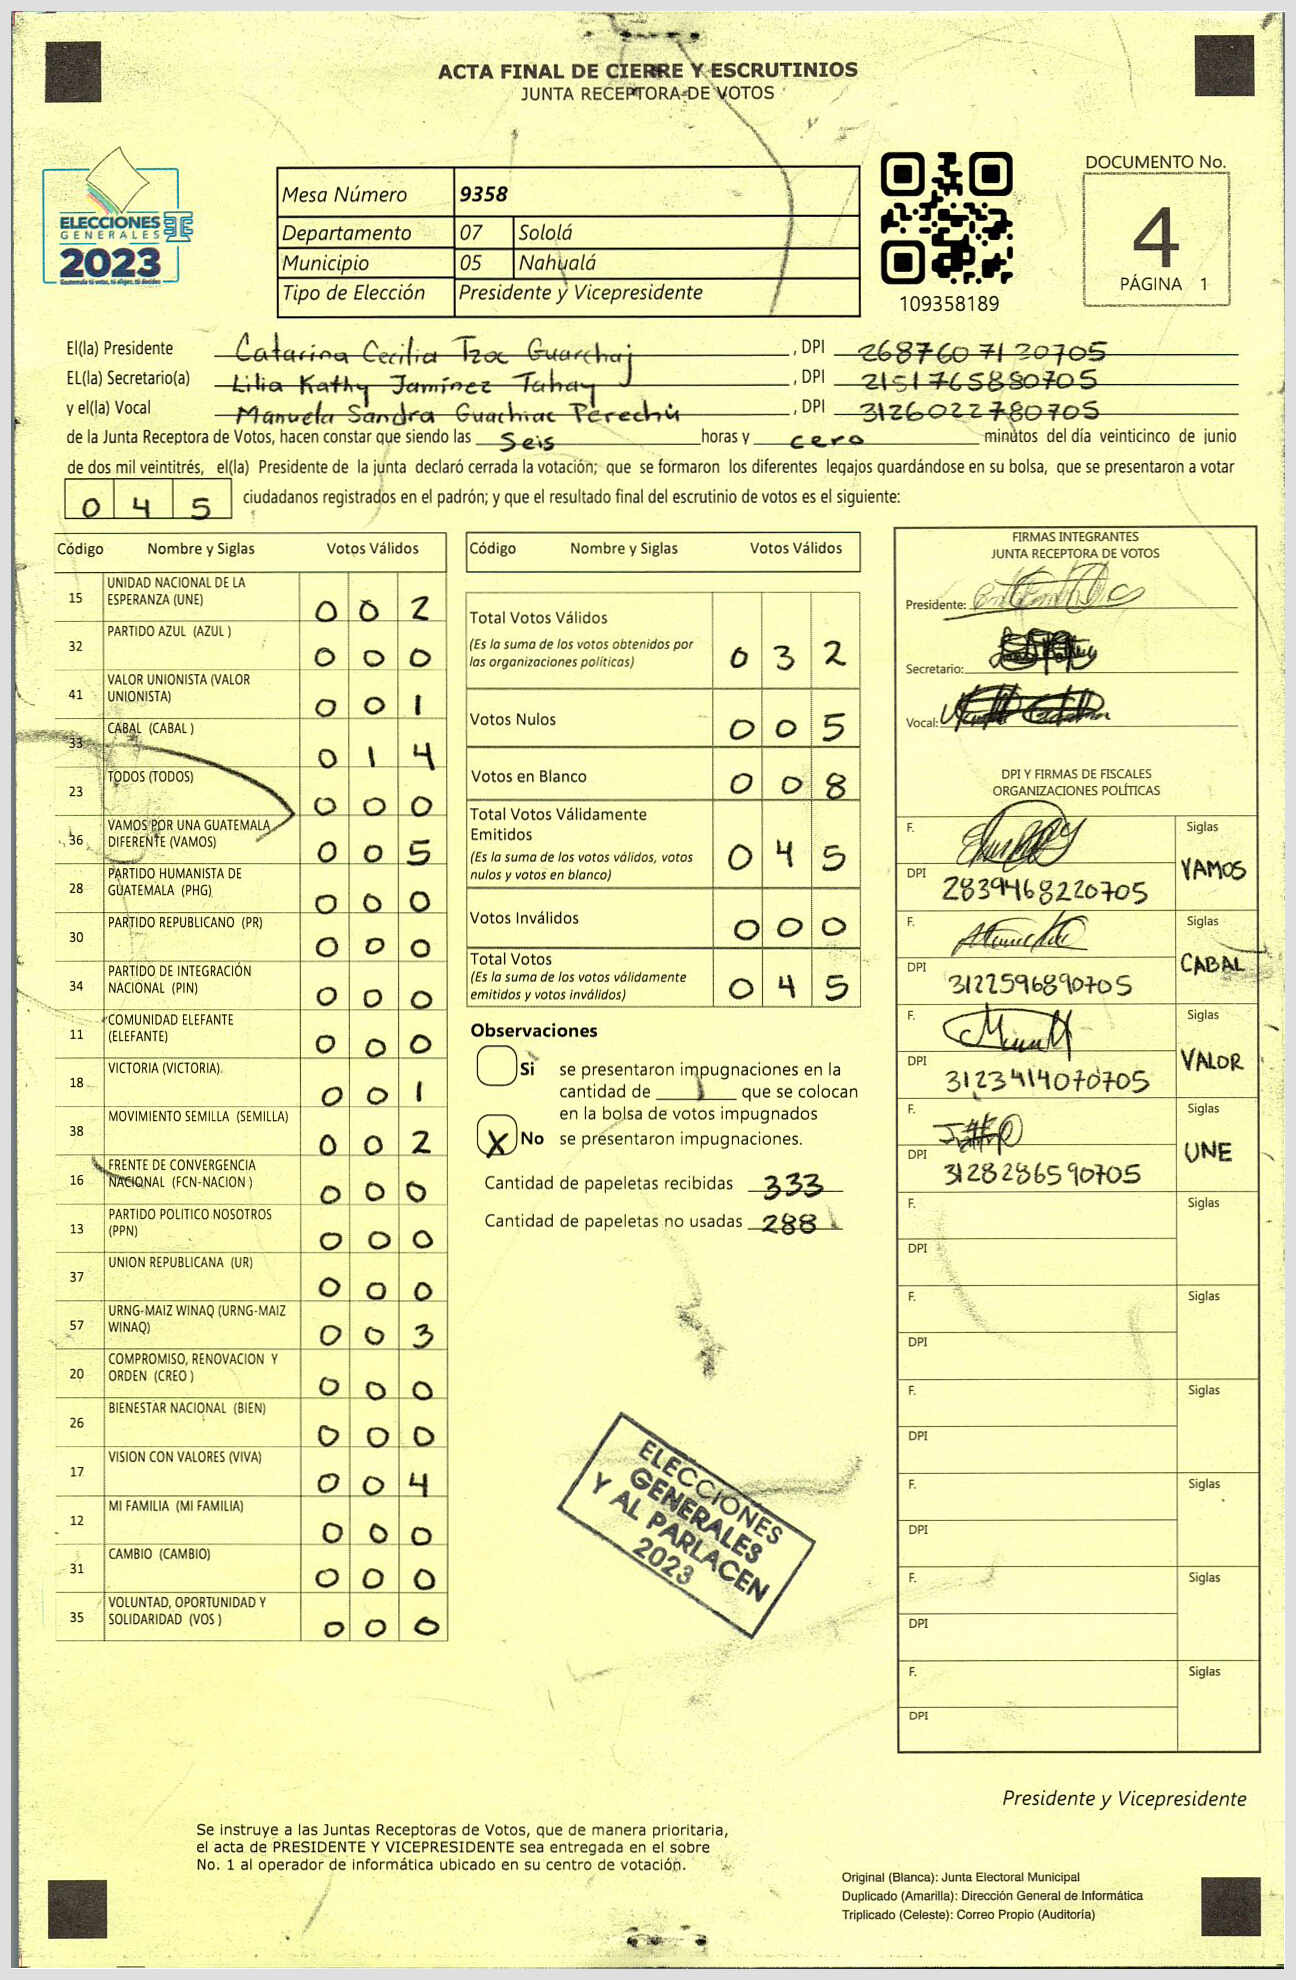 ACTA FINAL DE CIERRE Y ESCRUTINIOS
JUNTA RECEPTORA DE VOTOS
ELECCIONES
GENERALES
2023
Guatemala tú votas, tú eliges, tú decides
Mesa Número 9358
Departamento 07 Sololá
Municipio 05 Nahualá
Tipo de Elección Presidente y Vicepresidente
109358189
DOCUMENTO No.
4
PÁGINA 1
El(la) Presidente Catarina Cecilia Tzoc Guarchaj, DPI 2687607130705
EL(la) Secretario(a) Lilia Kathy Jamínez Tahay, DPI 2151765880705
y el(la) Vocal Manuela Sandra Guachiac Perechú, DPI 3126022780705
de la Junta Receptora de Votos, hacen constar que siendo las Seis horas y cero minutos del día veinticinco de junio
de dos mil veintitrés, el(la) Presidente de la junta declaró cerrada la votación; que se formaron los diferentes legajos guardándose en su bolsa, que se presentaron a votar
045 ciudadanos registrados en el padrón; y que el resultado final del escrutinio de votos es el siguiente:
Código Nombre y Siglas Votos Válidos
15 UNIDAD NACIONAL DE LA
ESPERANZA (UNE) 0 0 2
32 PARTIDO AZUL (AZUL ) 0 0 0
41 VALOR UNIONISTA (VALOR
UNIONISTA) 0 0 1
33 CABAL (CABAL ) 0 1 4
23 TODOS (TODOS) 0 0 0
36 VAMOS POR UNA GUATEMALA
DIFERENTE (VAMOS) 0 0 5
28 PARTIDO HUMANISTA DE
GUATEMALA (PHG) 0 0 0
30 PARTIDO REPUBLICANO (PR) 0 0 0
34 PARTIDO DE INTEGRACIÓN
NACIONAL (PIN) 0 0 0
11 COMUNIDAD ELEFANTE
(ELEFANTE) 0 0 0
18 VICTORIA (VICTORIA) 0 0 1
38 MOVIMIENTO SEMILLA (SEMILLA) 0 0 2
16 FRENTE DE CONVERGENCIA
NACIONAL (FCN-NACION ) 0 0 0
13 PARTIDO POLITICO NOSOTROS
(PPN) 0 0 0
37 UNION REPUBLICANA (UR) 0 0 0
57 URNG-MAIZ WINAQ (URNG-MAIZ
WINAQ) 0 0 3
20 COMPROMISO, RENOVACION Y
ORDEN (CREO ) 0 0 0
26 BIENESTAR NACIONAL (BIEN) 0 0 0
17 VISION CON VALORES (VIVA) 0 0 4
12 MI FAMILIA (MI FAMILIA) 0 0 0
31 CAMBIO (CAMBIO) 0 0 0
35 VOLUNTAD, OPORTUNIDAD Y
SOLIDARIDAD (VOS ) 0 0 0
Código Nombre y Siglas Votos Válidos
Total Votos Válidos
(Es la suma de los votos obtenidos por
las organizaciones políticas) 0 3 2
Votos Nulos 0 0 5
Votos en Blanco 0 0 8
Total Votos Válidamente
Emitidos
(Es la suma de los votos válidos, votos
nulos y votos en blanco) 0 4 5
Votos Inválidos 0 0 0
Total Votos
(Es la suma de los votos válidamente
emitidos y votos inválidos) 0 4 5
Observaciones
Si se presentaron impugnaciones en la
cantidad de ______ que se colocan
en la bolsa de votos impugnados
X No se presentaron impugnaciones.
Cantidad de papeletas recibidas 333
Cantidad de papeletas no usadas 288
ELECCIONES
GENERALES
Y AL PARLACEN
2023
FIRMAS INTEGRANTES
JUNTA RECEPTORA DE VOTOS
Presidente:
Secretario:
Vocal:
DPI Y FIRMAS DE FISCALES
ORGANIZACIONES POLÍTICAS
F. Siglas
DPI 2839468220705 VAMOS
F. Siglas
DPI 3122596890705 CABAL
F. Siglas
DPI 3123414070705 VALOR
F. Siglas
DPI 3128286590705 UNE
F. Siglas
DPI
F. Siglas
DPI
F. Siglas
DPI
F. Siglas
DPI
F. Siglas
DPI
F. Siglas
DPI
Presidente y Vicepresidente
Se instruye a las Juntas Receptoras de Votos, que de manera prioritaria,
el acta de PRESIDENTE Y VICEPRESIDENTE sea entregada en el sobre
No. 1 al operador de informática ubicado en su centro de votación.
Original (Blanca): Junta Electoral Municipal
Duplicado (Amarilla): Dirección General de Informática
Triplicado (Celeste): Correo Propio (Auditoría)